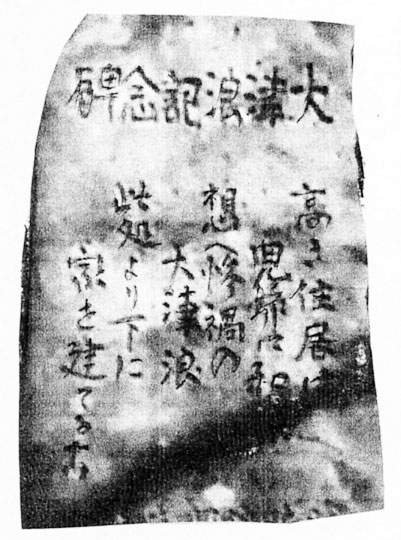 大津浪記念碑
高き住居は
児孫に和
想へ惨禍の
大津浪
此処より下に
家を建てるな